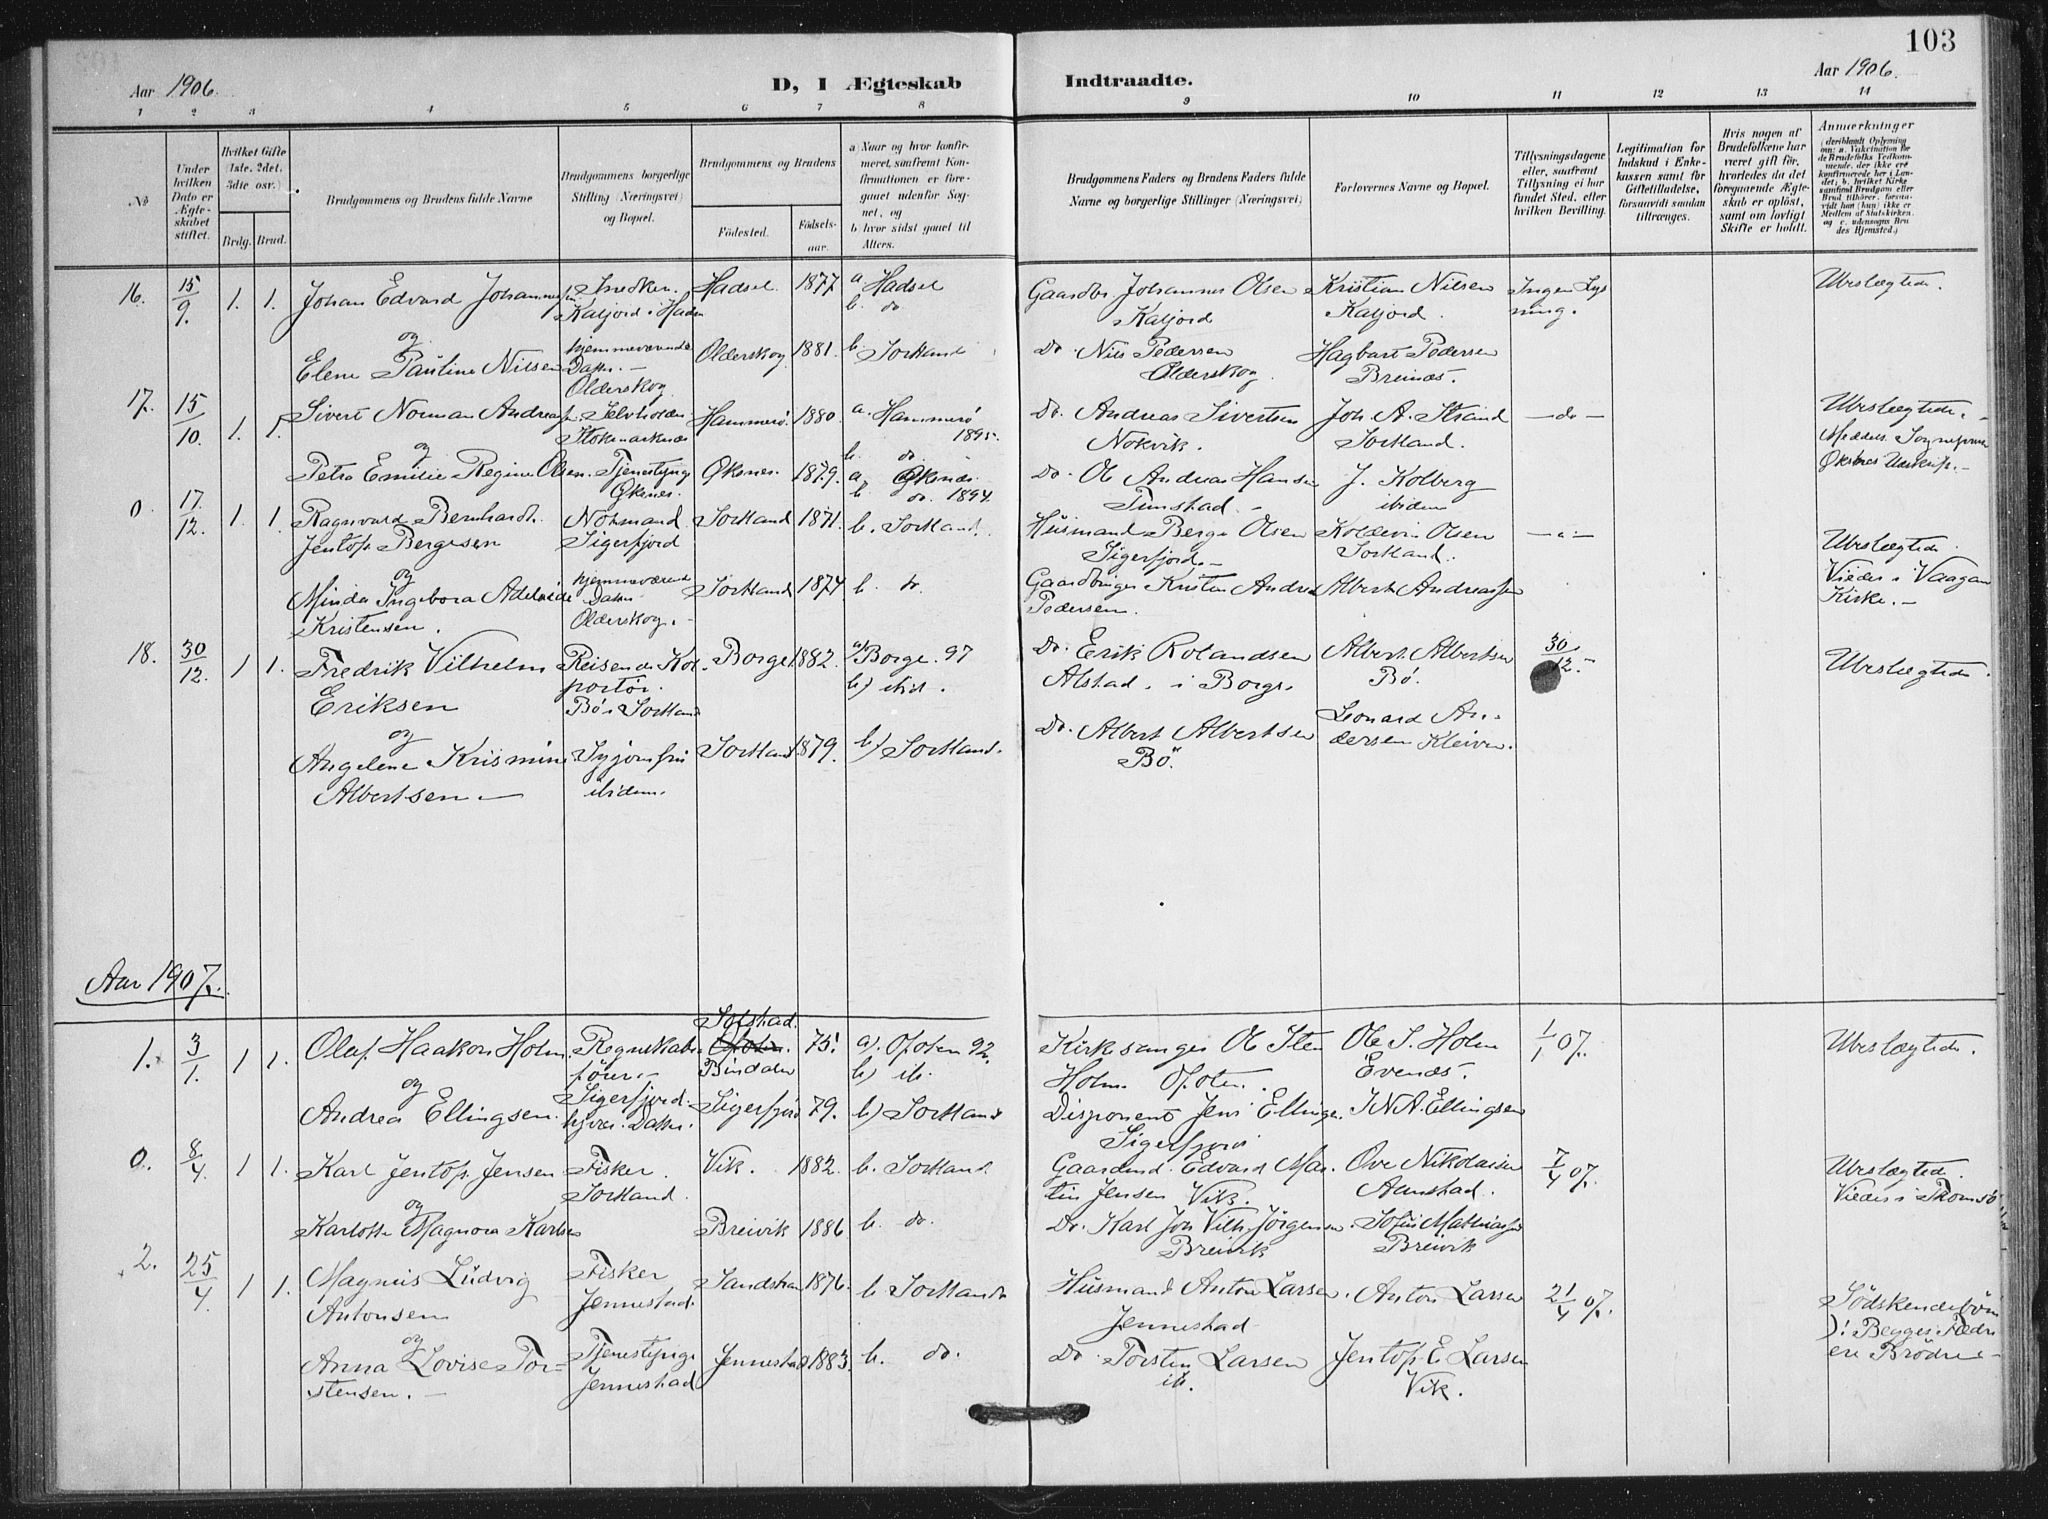 103
Aar 1906.
D, I Ægteskab
Indtraadte.
Aar 1906.
1 2 3 4 5 6 7 8 9 10 11 12 13 14
No
Under hvilken Dato er Ægteskabet stiftet.
Hvilket Gifte (1ste, 2det, 3die osv.)
Brdg. Brud.
Brudgommens og Brudens fulde Navne
Brudgommens borgerlige Stilling (Næringsvei) og Bopæl.
Brudgommens og Brudens
Fødested.
Fødselsaar.
a) Naar og hvor konfirmeret, saafremt Konfirmationen er foregaaet udenfor Sognet, og
b hvor sidst gaaet til Alters.
Brudgommens Faders og Brudens Faders fulde Navne og borgerlige Stillinger (Næringsvei)
Forlovernes Navne og Bopæl.
Tillysningsdagene eller, saafremt Tillysning ei har fundet Sted, efter hvilken Bevilling.
Legitimation for Indskud i Enkekassen samt for Giftetilladelse, forsaavidt saadan tiltrænges.
Hvis nogen af Brudefolkene har været gift før, hvorledes da det foregaaende Ægteskab er opløst, samt om lovligt Skifte er holdt.
Anmærkninger
(deriblandt Oplysning om: a. Vaccination for de Brudefolks Vedkommende, der ikke ere konfirmerede her i Landet; b. hvilket Kirkesamfund Brudgom eller Brud tilhører, forsaavidt han (hun) ikke er Medlem af Statskirken, og c. udensogns Brudes Hjemsted.)
16. 15/9. 1. 1. Johan Edvard Johannessen Hadsel. 1877 a Hadsel b. do Gaardbr Johannes Olsen Kristian Nilsen Ingen Lys- Ubeslægtede.
Kaljord i Hadsel Kaljord Kaljord. ning.
og hjemmeværende
Elene Pauline Nilsen Datter. - Olderskog Olderskog 1881. b. Sortland Do. Nils Pedersen Olderskog. Hagbart Pedersen Breinæs.
17. 15/10. 1. 1. Sivert Norman Andreassen Stokmarknæs Hammerø. 1880. a. Hammerø 1895. b. do. Do. Andreas Sivertsen Nokvik. Joh. A. Strand Sortland. - do - Ubeslægtede. -
og
Petra Emilie Regine Olsen. Tjenestepige Øksnes. Øksnes. 1879. a Øksnæs. b. do. 1894. Do. Ole Andreas Hansen Tunstad. - J. Kolberg ibidem
0. 17/12. 1. 1. Ragnvard Bernhard Jentof Bergesen Sigerfjord Sortland 1871. b. Sortland. Husmand Berge Olsen Sigerfjord. - Koldevin Olsen Sortland. - " - Ubeslægtede.
Viedes i Vaagan Kirke. -
og
Minda Ingebora Adelaide Kristensen. hjemmeværende Datter Olderskog. - Sortland 1874 b. do. Gaardbruger Kristen Andreas Pedersen. Albert Andreassen
18. 30/12. 1 1. Fredrik Vilhelm Eriksen Reisende Kolportør. Bø i Sortland Borge 1882. a) Borge. 97 b) ibid. Do. Erik Rolandsen Alstad. i Borge. Albert Albertsen Bø. 30/12. - Ubeslægtede.
og
Angelene Krismine Albertsen. - Syjomfru ibidem. Sortland 1879. b) Sortland. Do. Albert Albertsen Bø. Leonard Andersen Kleiven.
Aar 1907.
1. 3/1. 1 1. Olaf Haakon Holm. Regnskabsfører. - Sigerfjord. Solstad. Bindalen 75. a). Ofoten 92. b) ib. Kirkesanger Ole Sten Holm Ofoten. Ole S. Holm Evenæs. 1/1 07. Ubeslægtede.
og
Andrea Ellingsen. hjvær. Datter. Sigerfjord 79. b) Sortland Disponent Jens Ellingsen Sigerfjord I N A. Ellingsen
0. 8/4. 1 1. Karl Jentof Jensen Fisker Sortland. Vik. 1882. b. Sortland. Gaardmd. Edvard Martin Jensen Vik. Ove Nikolaisen Aanstad. 7/4 07. Ubeslægtede.
Viedes i Tromsø
og
Karlotte Magnora Karlsen Breivik 1886 b. do. Do. Karl Joh Vilh. Jørgensen. Breivik Sofus Mathiassen Breivik
2. 25/4. 1 1. Magnus Ludvig Antonsen Fisker Jennestad. Sandstrand 1876. b. Sortland Husmand Anton Larsen. Jennestad Anton Larsen 21/4 07. Sødskendebørn ): Begges Fædre ere Brødre -
og
Anna Lovise Torstensen. - Tjenestepige Jennestad Jennestad 1883. b. do. Do Torsten Larsen ib. Jentof E Larsen Vik.